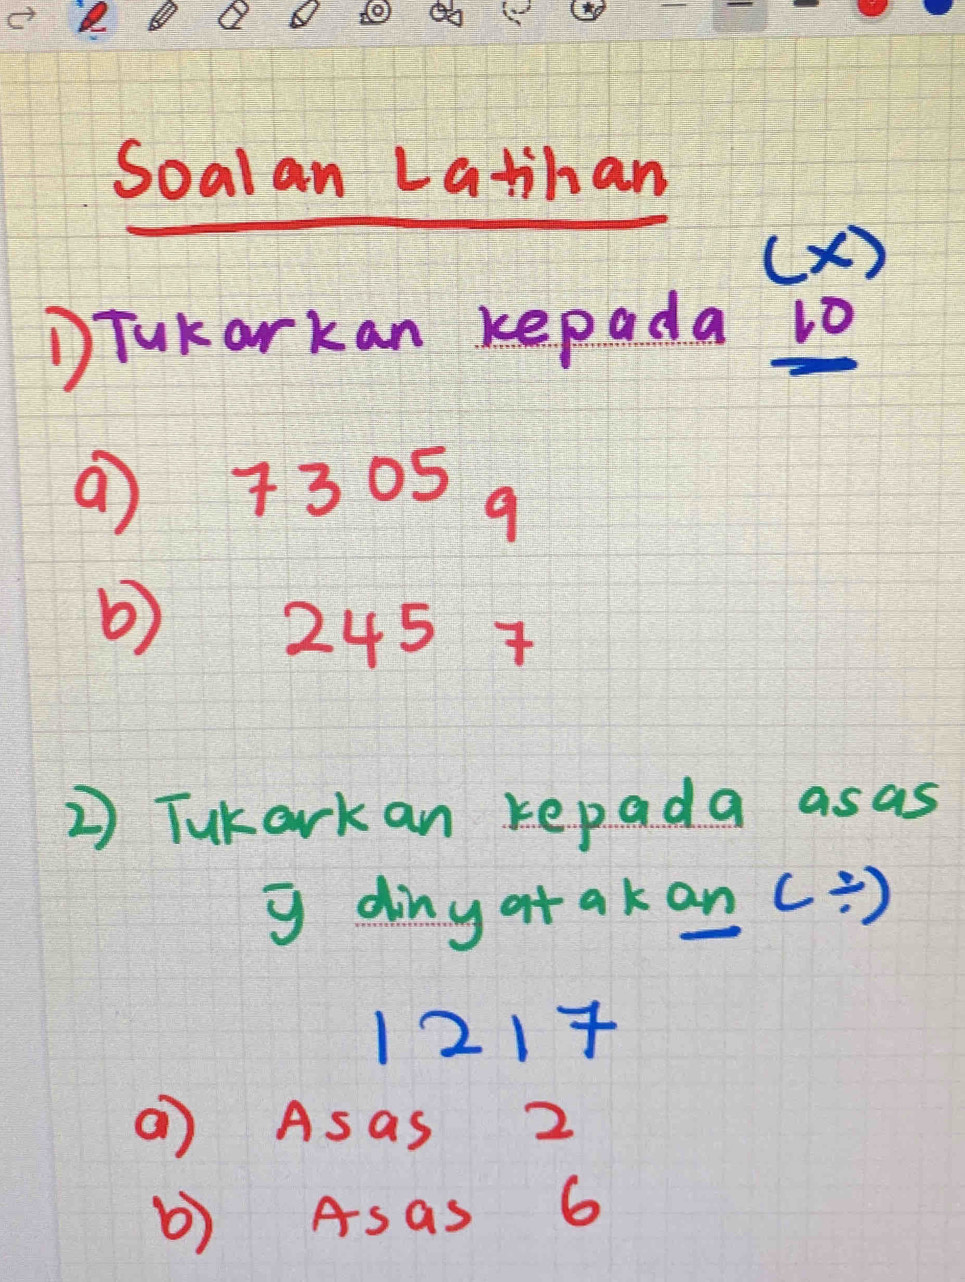 Soalan Latihan
(×)
1) Tukarkan kepada 10
a) 7305 9
b) 245 7
2) Tukarkan kepada asas
yg dinyatakan (÷)
1217
a) Asas 2
b) Asas 6